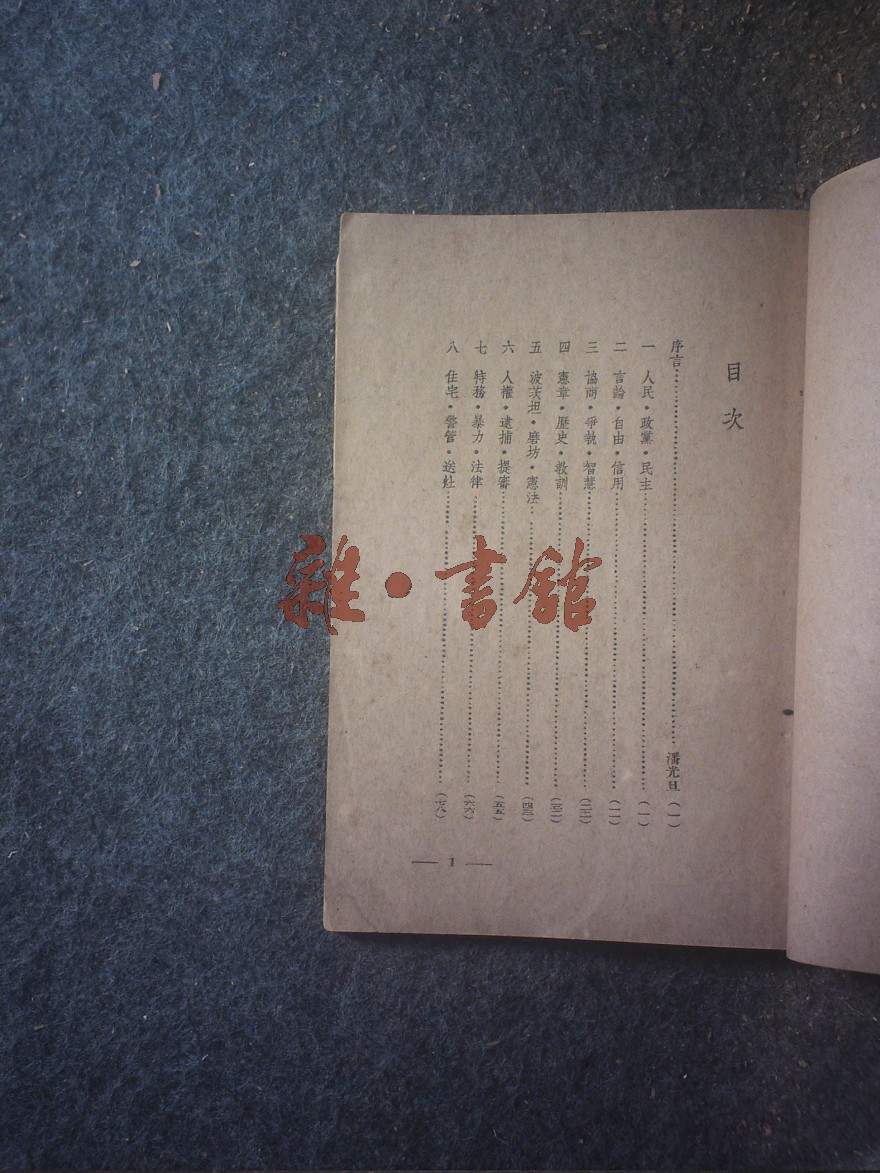 目次
序言……潘光旦（一）
一 人民・政黨・民主……（一）
二 言論・自由・信用……（一一）
三 協商・爭執・智慧……（二二）
四 憲章・歷史・教訓……（三二）
五 波茨坦・磨坊・憲法……（四三）
六 人權・逮捕・提審……（五五）
七 特務・暴力・法律……（六六）
八 住宅・警管・送灶……（七八）
— 1 —
雜・書館